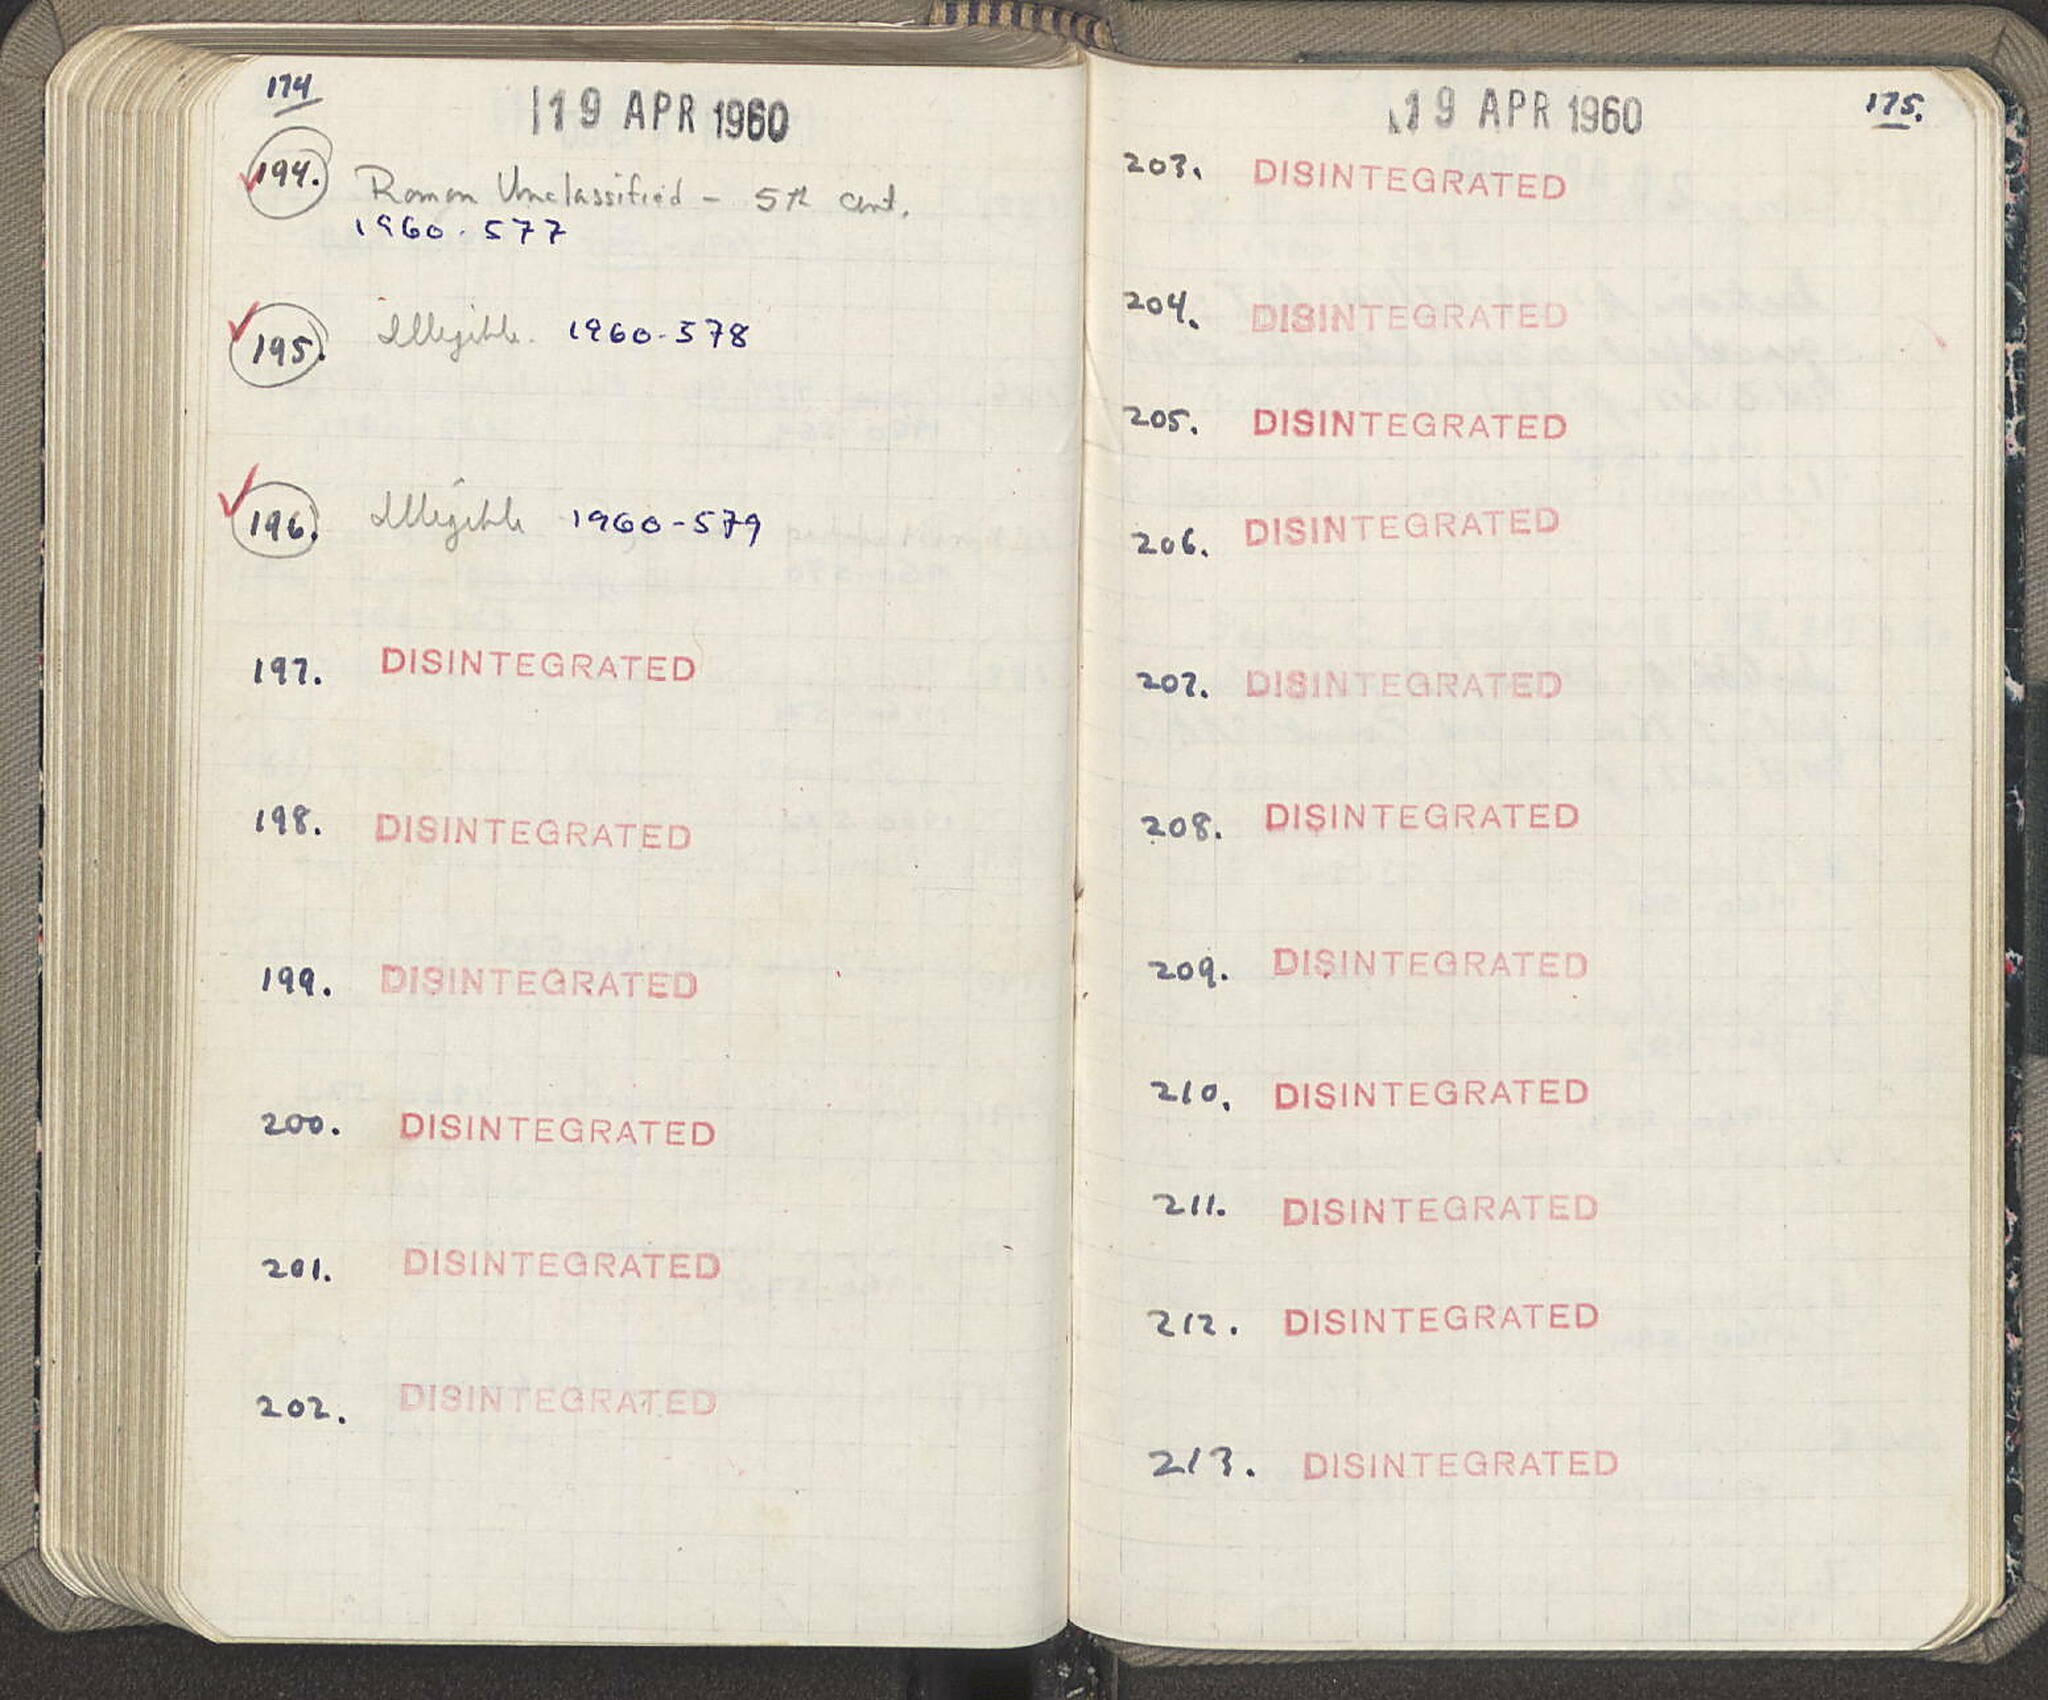 174
19 APR 1960
194. Roman Unclassified - 5th cent.
1960-577
195. Illegible. 1960-578
196. Illegible 1960-579
197. DISINTEGRATED
198. DISINTEGRATED
199. DISINTEGRATED
200. DISINTEGRATED
201. DISINTEGRATED
202. DISINTEGRATED
19 APR 1960
175.
203. DISINTEGRATED
204. DISINTEGRATED
205. DISINTEGRATED
206. DISINTEGRATED
207. DISINTEGRATED
208. DISINTEGRATED
209. DISINTEGRATED
210. DISINTEGRATED
211. DISINTEGRATED
212. DISINTEGRATED
213. DISINTEGRATED